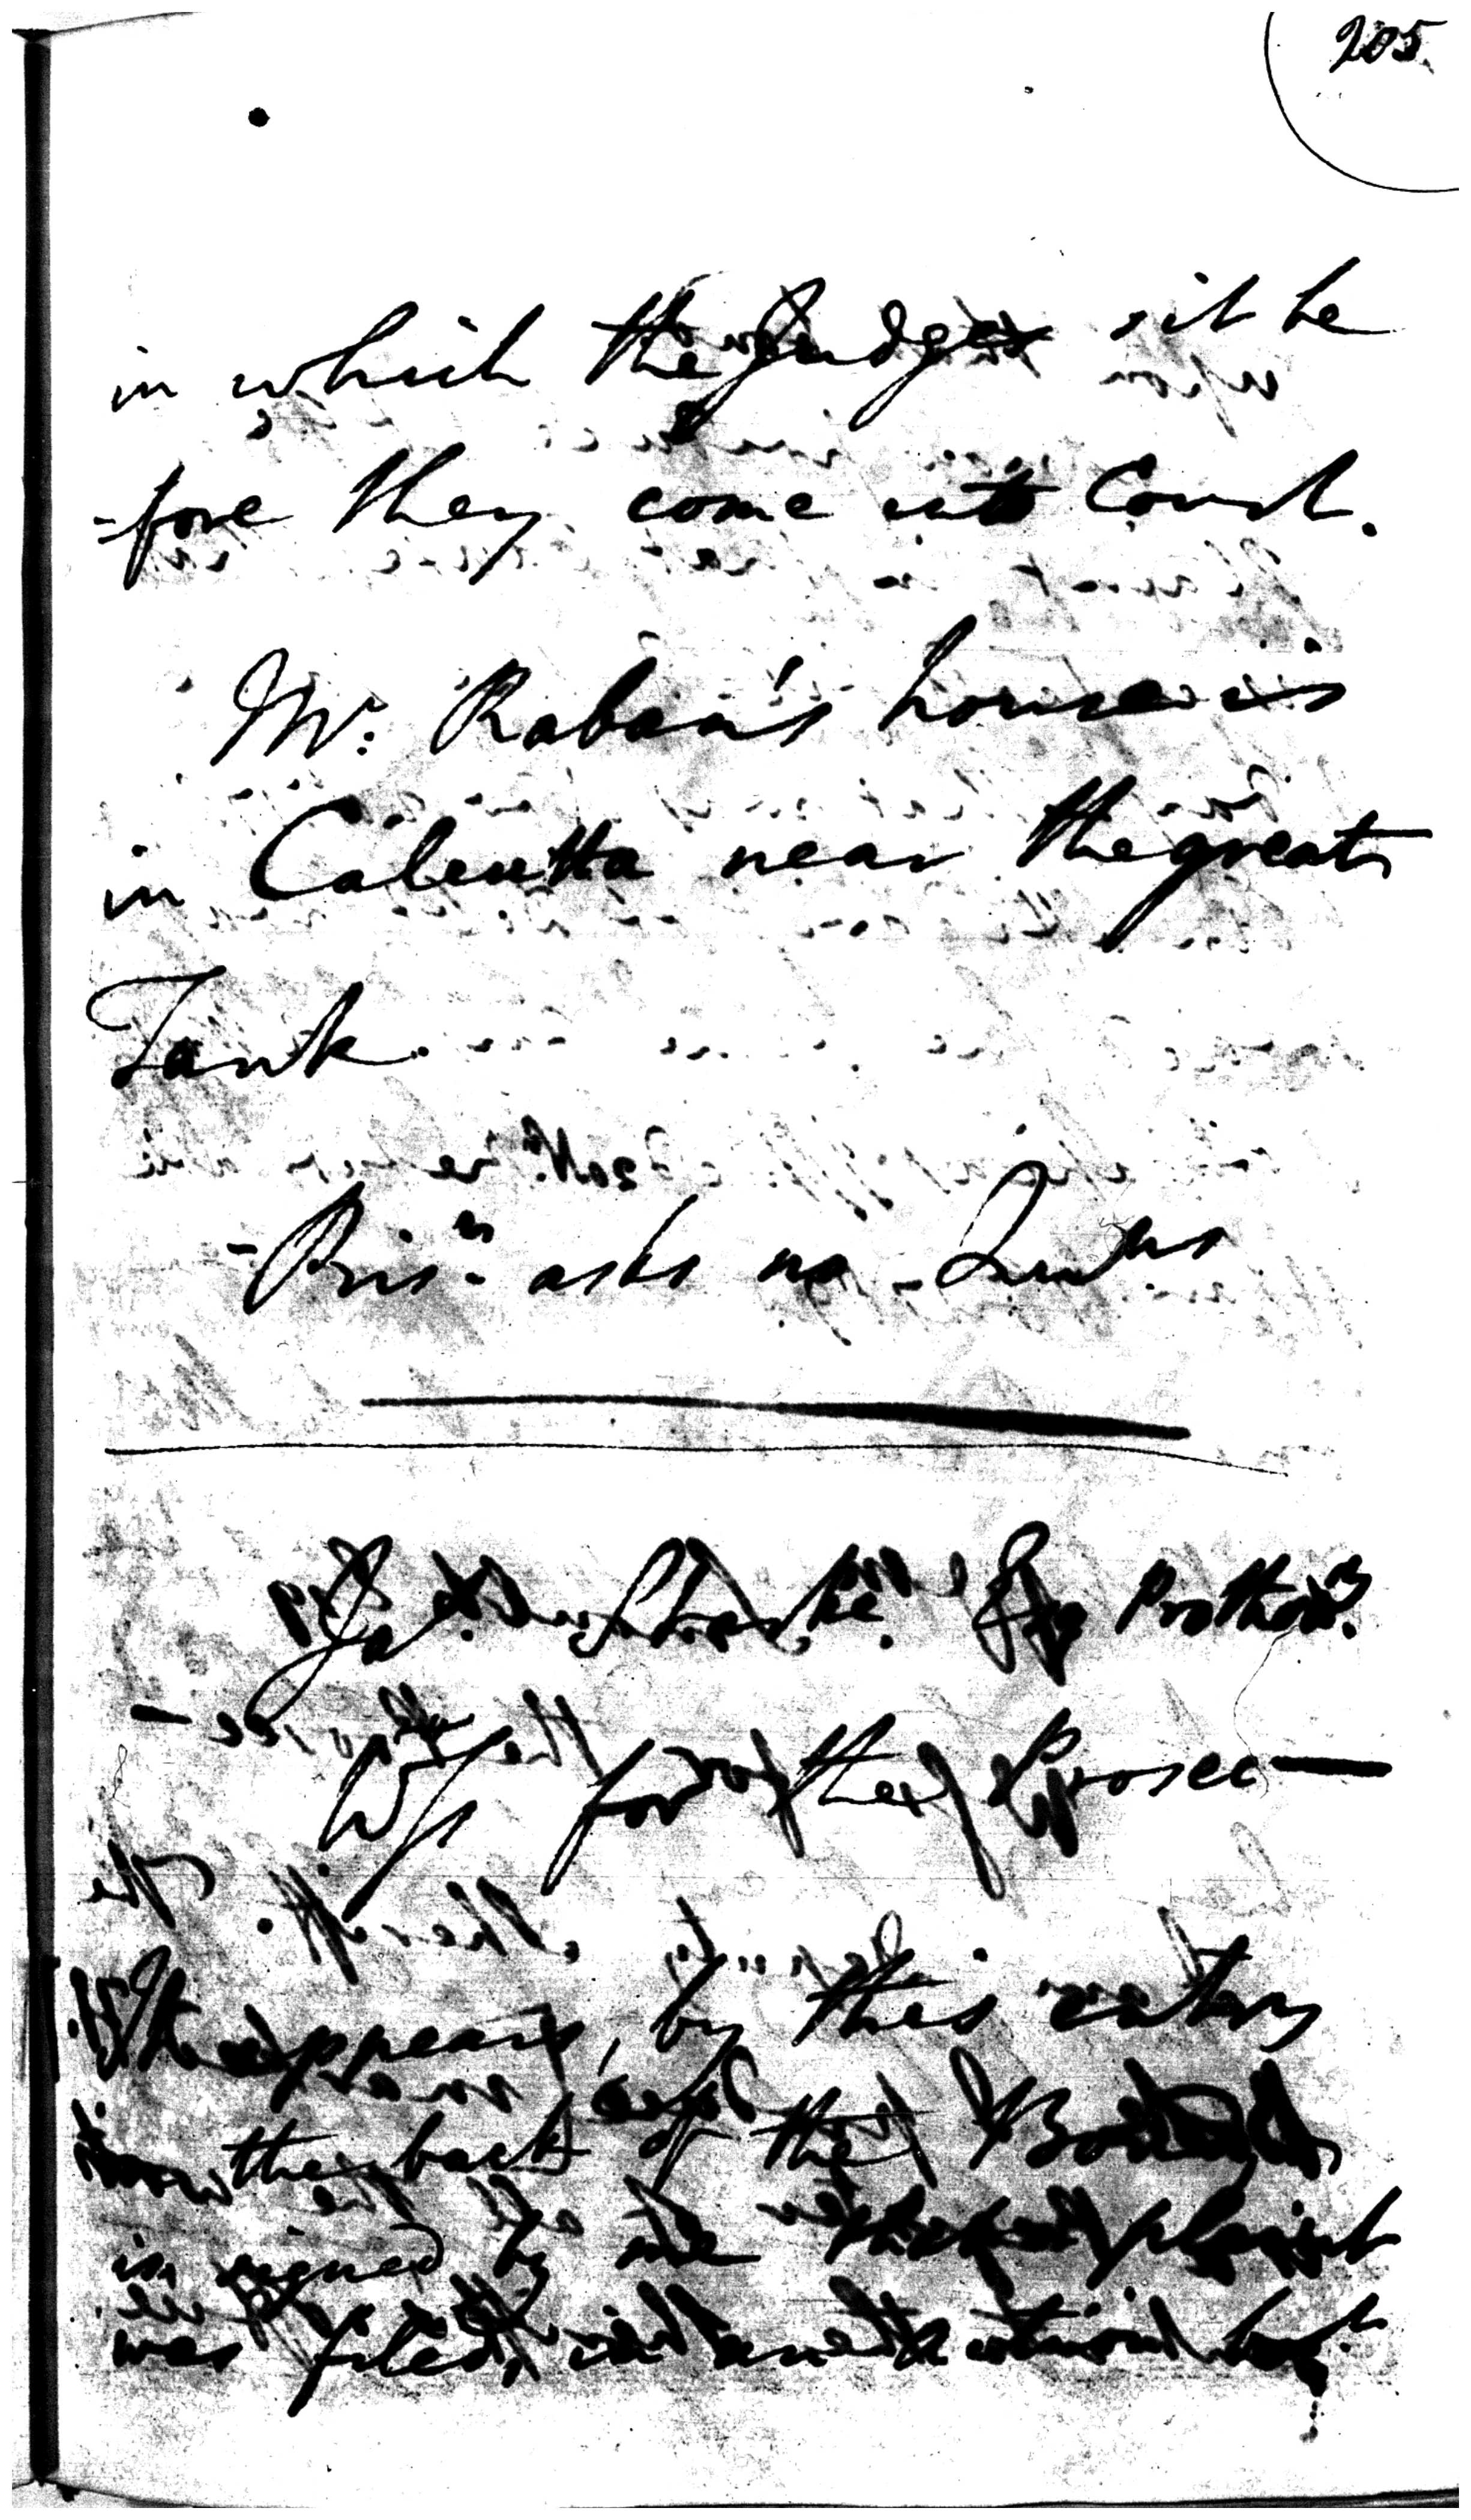 205
in which the Judges sit be
-fore they come into Court.
Mr. Raban's house is
in Calcutta near the great
Tank.
- Prisr asks no - Questns
Ja. Starke. Esq Prothory.
Ws for the Prosec—
It appears, by this entry
on the back of the
is signed by me plaint
was filed, in an action